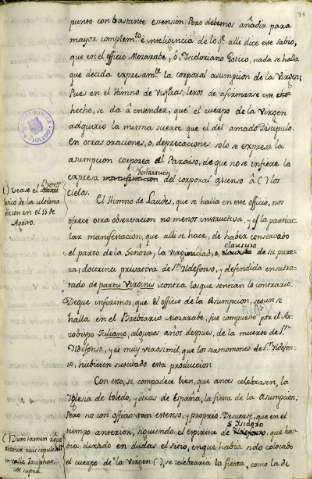 punto con bastante extension. Pero debemos añadir para
mayor complem.to é inteligencia de lo q.e alli dice este sabio,
que en el officio Mozarabe, ó Isidoriano Gotico, nada se halla
que decida expresam.te la corporal asumpcion de la Virgen;
Pues en el Himno de Visperas, lexos de afirmarse este
hecho, se dá á entender, que el cuerpo de la Virgen
adquirio la misma suerte que el del amado Discipulo.
En otras oraciones, o deprecaciones solo se expresa la
asumpcion corporea al Paraiso, de que no se infiere la
expresa declaracion del corporal ascenso á los
Cielos.
El Himno de Laudes, que se halla en este oficio, nos
ofrece otra observacion no menos instructiva, y es la particu-
lar manifestacion, que alli se hace, de haber conservado
el parto de la Señora, la virginidad, o clausura de su pure-
za; doctrina privativa de S.n Ildefonso, y defendida en su tra-
tado de partu Virginis contra los que sentian lo contrario.
De que inferimos, que el oficio de la Asumpcion, segun se
halla en el Breviario Mozarabe, fue compuesto por el Ar-
zobispo Juliano, algunos años despues, de la muerte de S.n
Ildefonso, y es muy verosimil, que los
hubiesen suscitado esta produccion.
Con esto, se compadece bien, que antes celebrasen, la
Iglesia de Toledo, y otras de España, la fiesta de la Asumpcion;
pero no con oficio tan extenso, y proprio. De suerte, que en el
tiempo anterior, siguiendo el espiritu de S. Isidoro, que ha-
bia dexado en dudas el sitio, en que habia sido colocado
el cuerpo de la Virgen (), se celebraria la fiesta, como la de
() Vease el
rico de la
cion en el 15 de
Agosto.